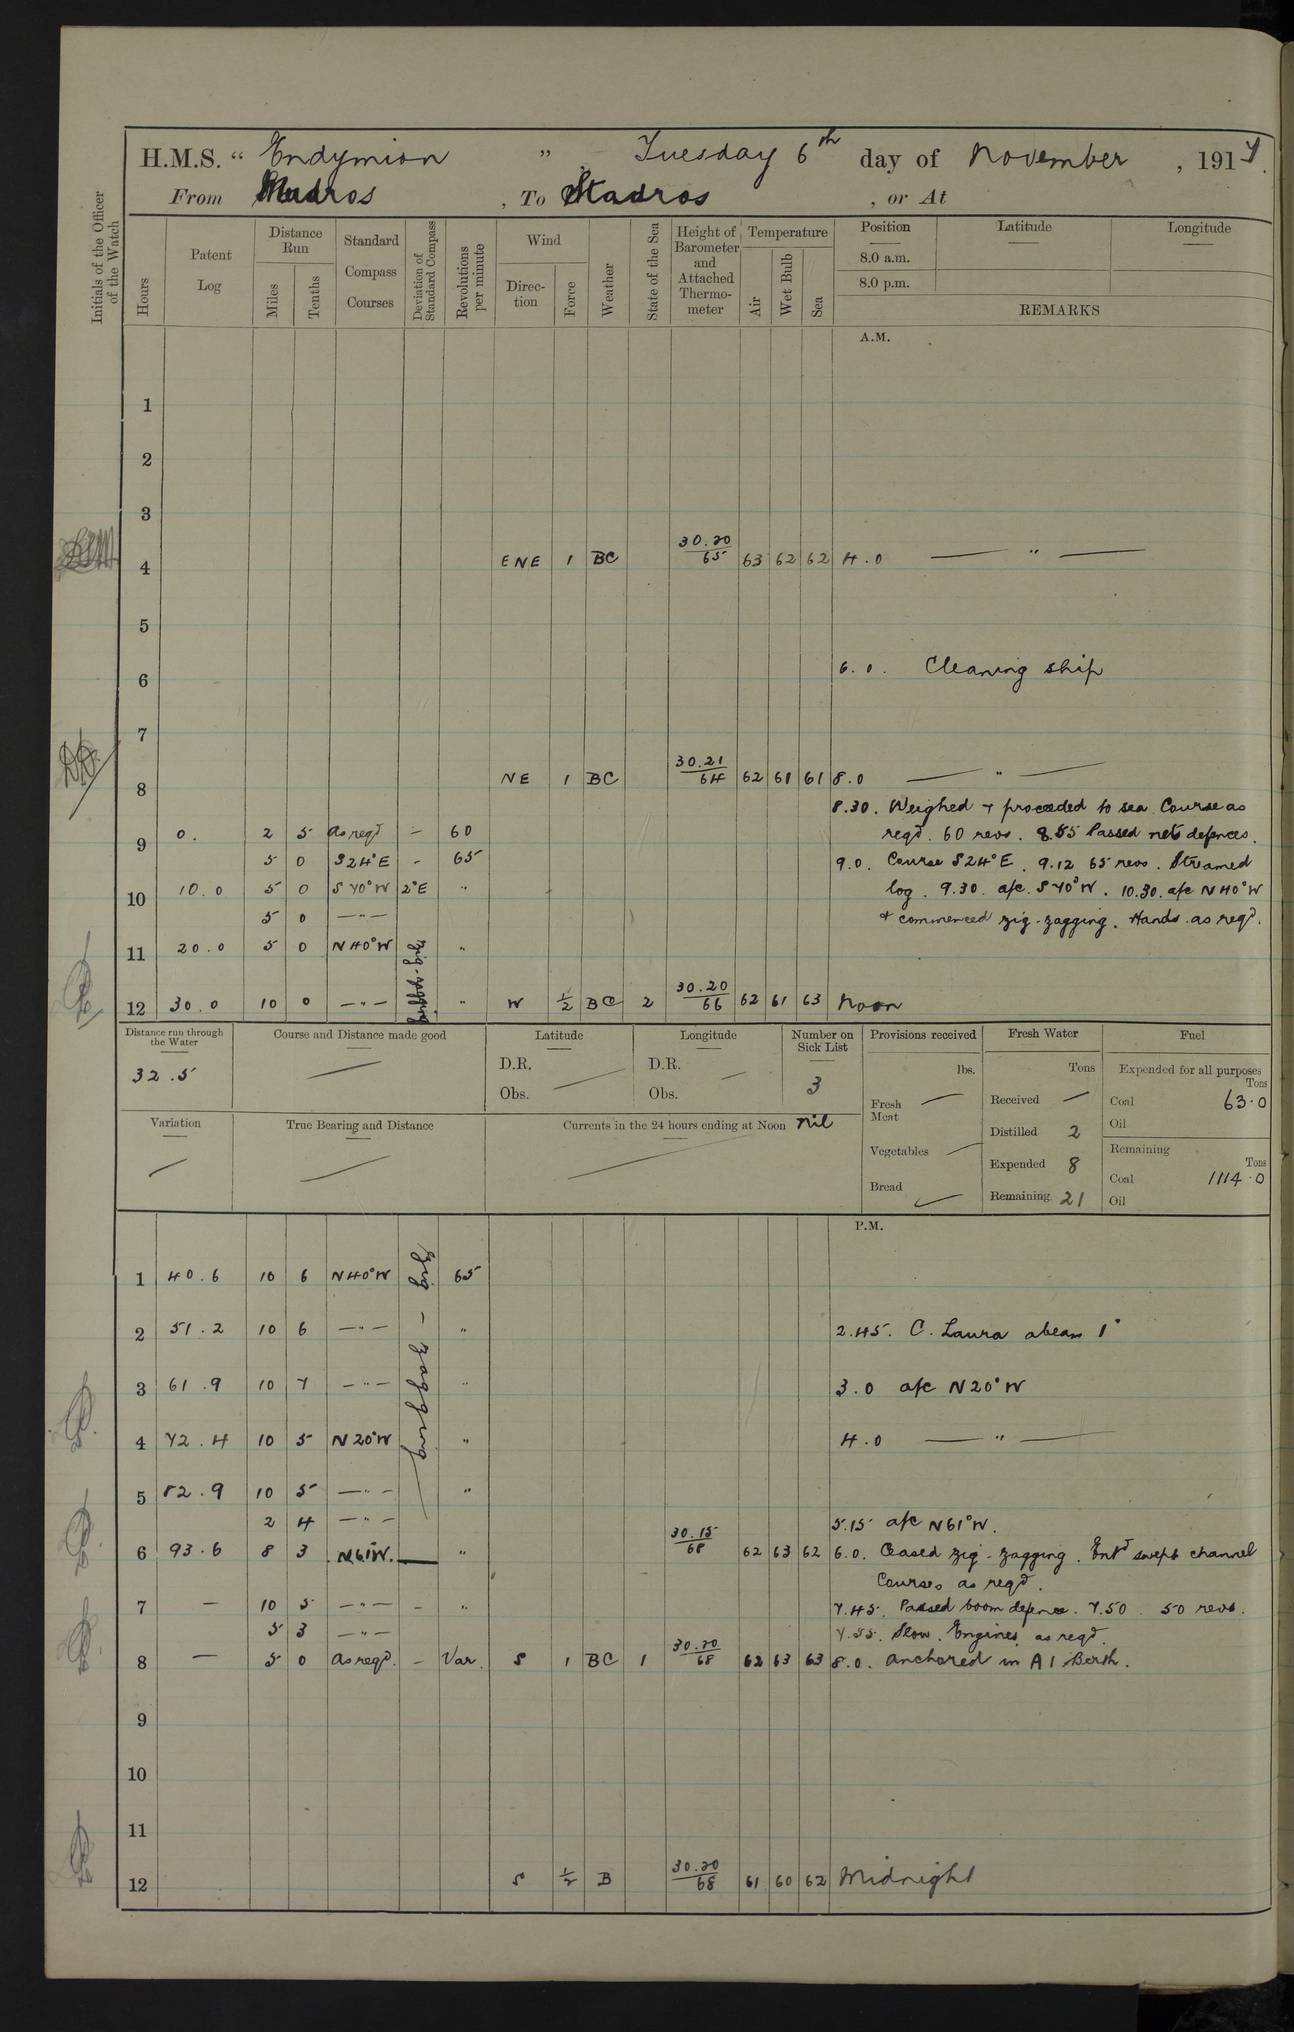 H.M.S. " Endymion ", Tuesday 6th day of November, 1917.
From Mudros, To Stavros, or At
Initials of the Officer of the Watch
Hours
Patent Log
Distance Run
Miles
Tenths
Standard Compass Courses
Deviation of Standard Compass
Revolutions per minute
Wind
Direction
Force
Weather
State of the Sea
Height of Barometer and Attached Thermometer
Temperature
Air
Wet Bulb
Sea
Position
8.0 a.m.
8.0 p.m.
Latitude
Longitude
REMARKS
A.M.
1
2
3
4 ENE 1 BC 30.20/65 63 62 62 4.0 — " —
5
6 6.0. Cleaning ship
7
8 NE 1 BC 30.21/64 62 61 61 8.0 — " —
8.30. Weighed + proceeded to sea Course as
9 0. 2 5 as reqd – 60 reqd. 60 revs. 8.55 Passed nets defences.
5 0 S24°E - 65 9.0. Course S24°E. 9.12 65 revs. Streamed
10 10.0 5 0 S70°W 2°E " log. 9.30. a/c. S70°W. 10.30. a/c N40°W
5 0 — " — + commenced zig-zagging. Hands as reqd.
11 20.0 5 0 N40°W zig-zagging "
12 30.0 10 0 — " — " W ½ BC 2 30.20/66 62 61 63 Noon
Distance run through the Water
32.5
Course and Distance made good
Latitude
D.R.
Obs.
Longitude
D.R.
Obs.
Number on Sick List
3
Provisions received
lbs.
Fresh Meat
Vegetables
Bread
Fresh Water
Tons
Received —
Distilled 2
Expended 8
Remaining 21
Fuel
Expended for all purposes
Tons
Coal 63.0
Oil
Remaining
Tons
Coal 1114.0
Oil
Variation
True Bearing and Distance
Currents in the 24 hours ending at Noon nil
P.M.
1 40.6 10 6 N40°W zig-zagging 65
2 51.2 10 6 — " — " 2.45. C. Laura abeam 1'
3 61.9 10 7 — " — " 3.0 a/c N20°W
4 72.4 10 5 N20°W " 4.0 — " —
5 82.9 10 5 — " — "
2 4 — " — 5.15 a/c N61°W.
6 93.6 8 3 N61°W. — " 30.15/68 62 63 62 6.0. Ceased zig-zagging. Entd swept channel
Courses as reqd.
7 — 10 5 — " — - " 7.45. Passed boom defence. 7.50. 50 revs.
5 3 — " — 7.55. Slow. Engines as reqd.
8 — 5 0 as reqd. - Var. S 1 BC 1 30.20/68 62 63 63 8.0. anchored in A1 Berth.
9
10
11
12 S ½ B 30.20/68 61 60 62 Midnight